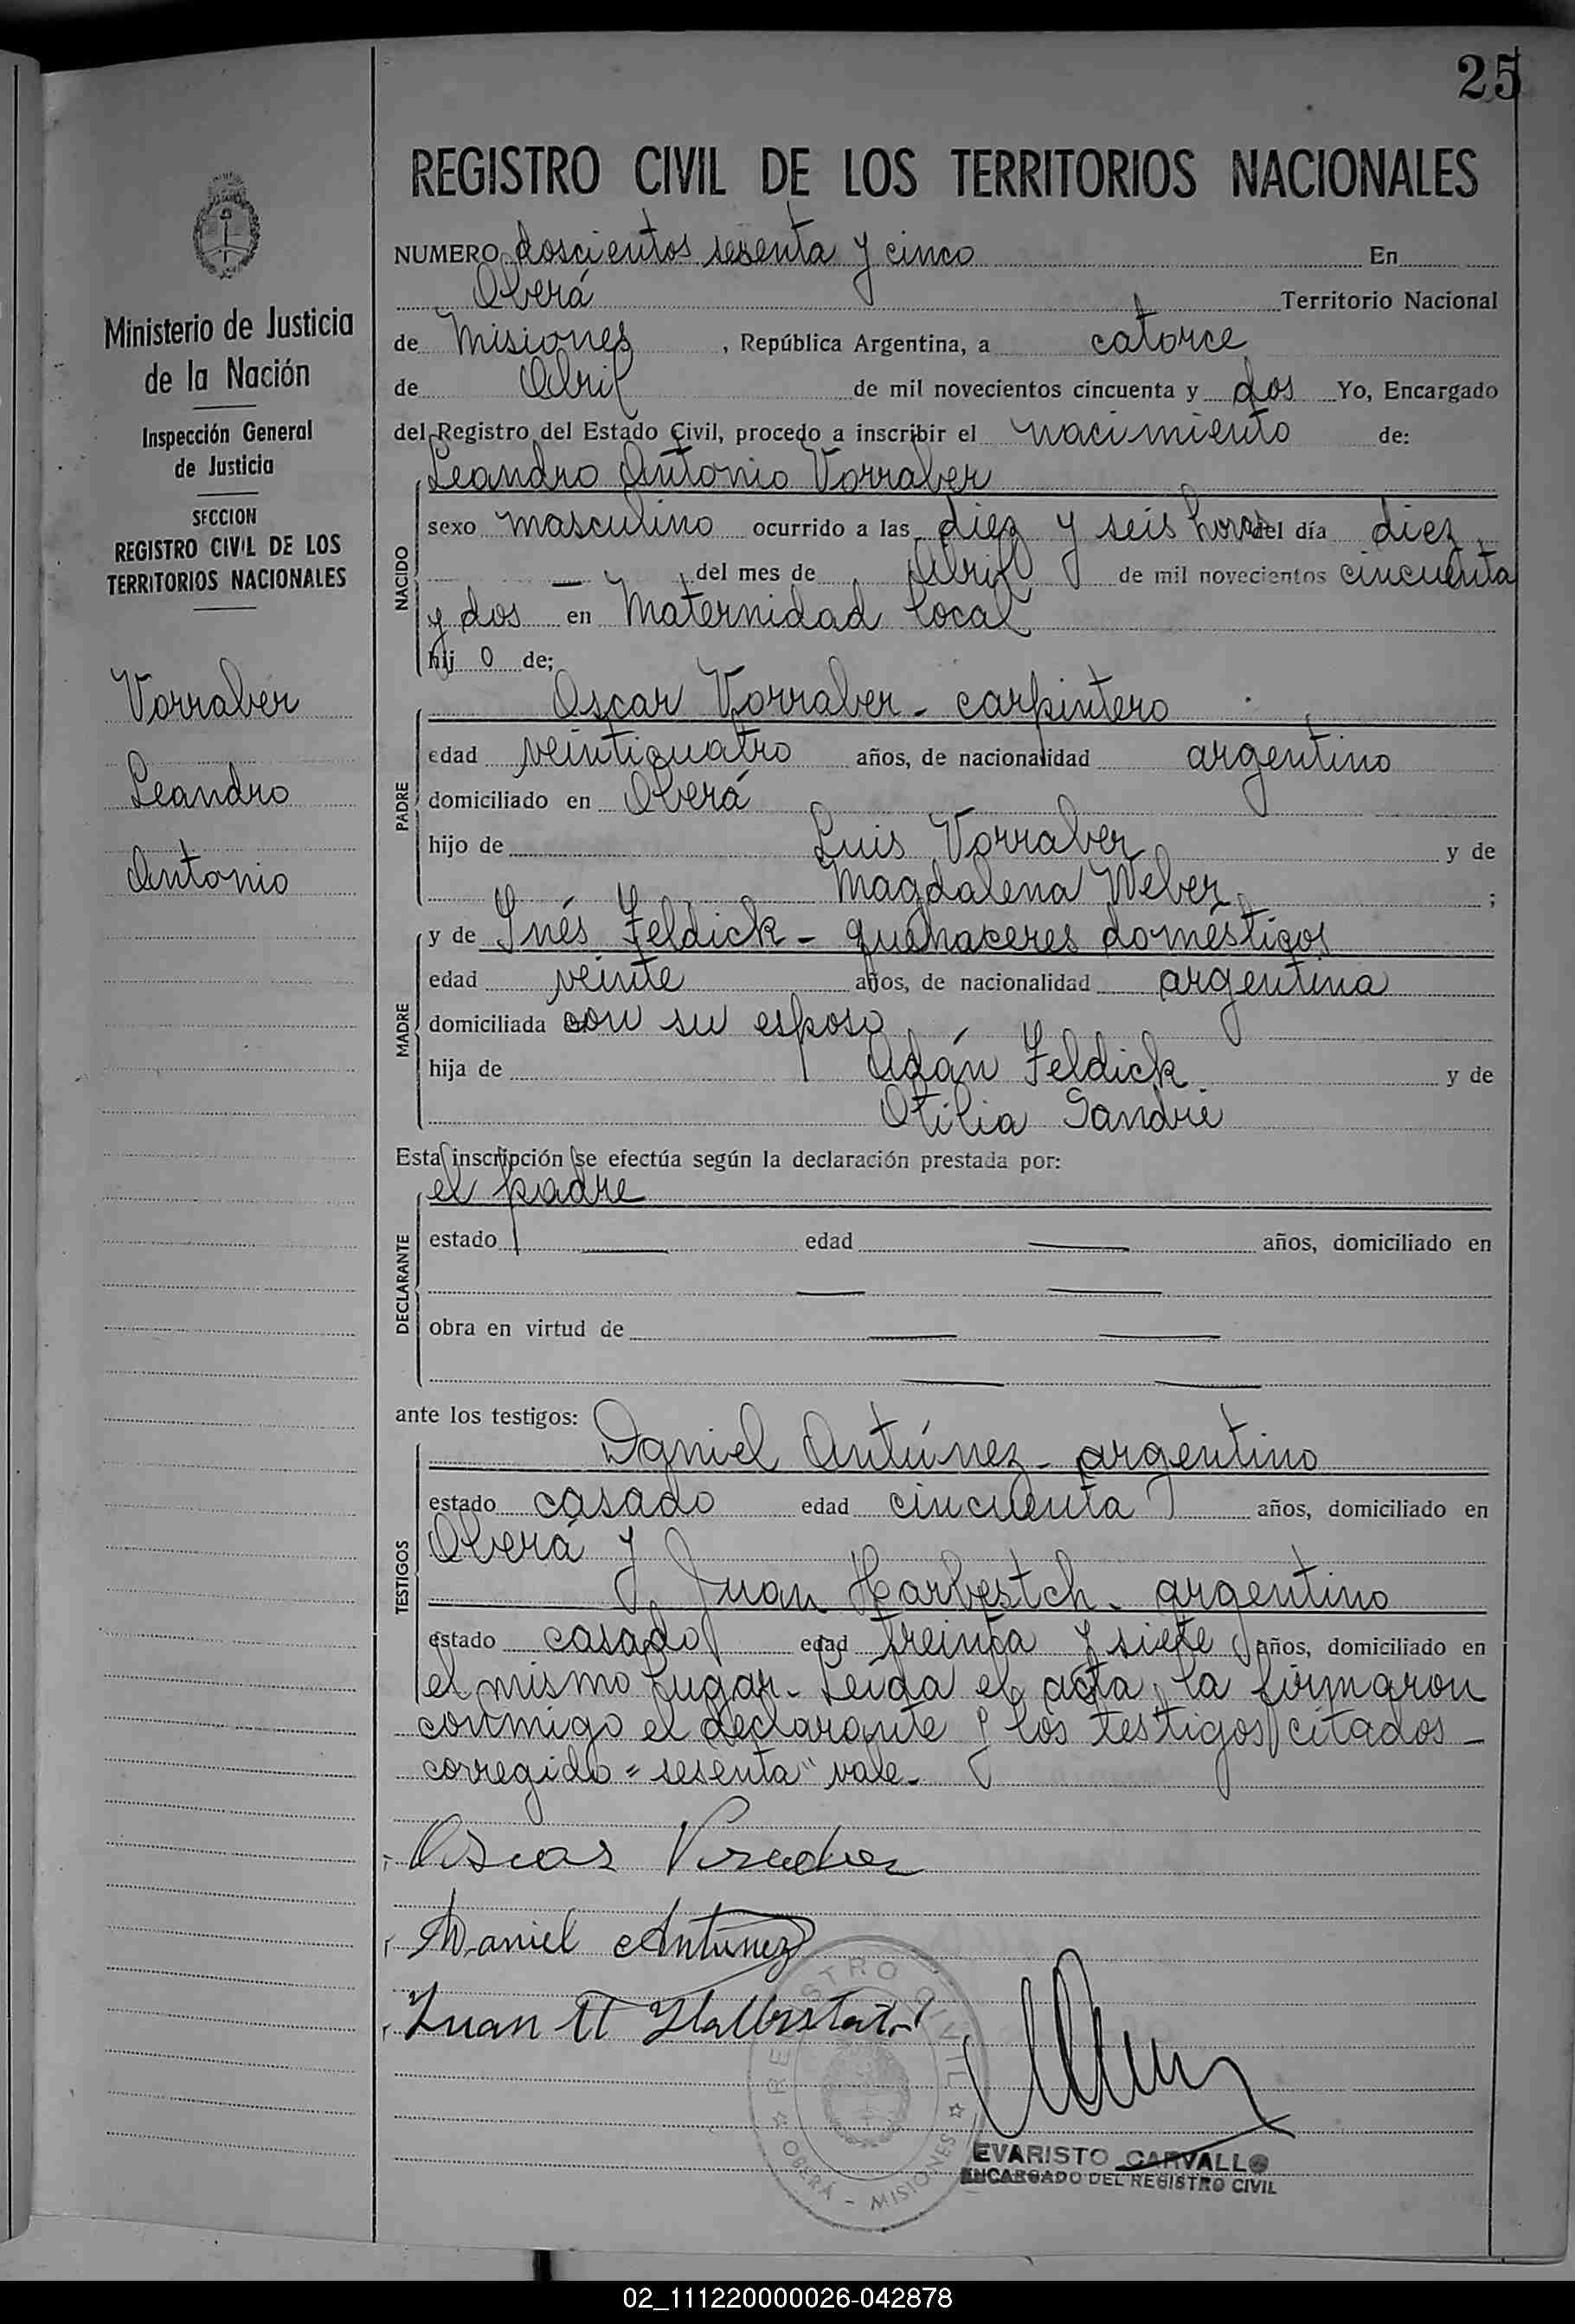 25
REGISTRO CIVIL DE LOS TERRITORIOS NACIONALES
Ministerio de Justicia
de la Nación
Inspección General
de Justicia
SECCION
REGISTRO CIVIL DE LOS
TERRITORIOS NACIONALES
Vorraber
Leandro
Antonio
NUMERO doscientos sesenta y cinco En
Oberá Territorio Nacional
de Misiones , República Argentina, a catorce
de Abril de mil novecientos cincuenta y dos Yo, Encargado
del Registro del Estado Civil, procedo a inscribir el nacimiento de:
Leandro Antonio Vorraber
NACIDO
sexo masculino ocurrido a las diez y seis horas del día diez
— del mes de Abril de mil novecientos cincuenta
y dos en Maternidad local
hij o de;
PADRE
Oscar Vorraber - carpintero
edad veinticuatro años, de nacionalidad argentino
domiciliado en Oberá
hijo de Luis Vorraber y de
Magdalena Weber ;
MADRE
y de Inés Feldick - quehaceres domésticos
edad veinte años, de nacionalidad argentina
domiciliada con su esposo
hija de Adán Feldick y de
Otilia Sandri
Esta inscripción se efectúa según la declaración prestada por:
DECLARANTE
el padre
estado — edad — años, domiciliado en
— —
obra en virtud de — —
— —
ante los testigos:
TESTIGOS
Daniel Antúnez - argentino
estado casado edad cincuenta años, domiciliado en
Oberá y
Juan Harbestch - argentino
estado casado edad treinta y siete años, domiciliado en
el mismo lugar - Leída el acta, la firmaron
conmigo el declarante y los testigos citados -
corregido "sesenta" vale -
Oscar
Daniel Antunez
Juan
REGISTRO CIVIL
OBERÁ - MISIONES
EVARISTO CARVALLO
ENCARGADO DEL REGISTRO CIVIL
02_111220000026-042878